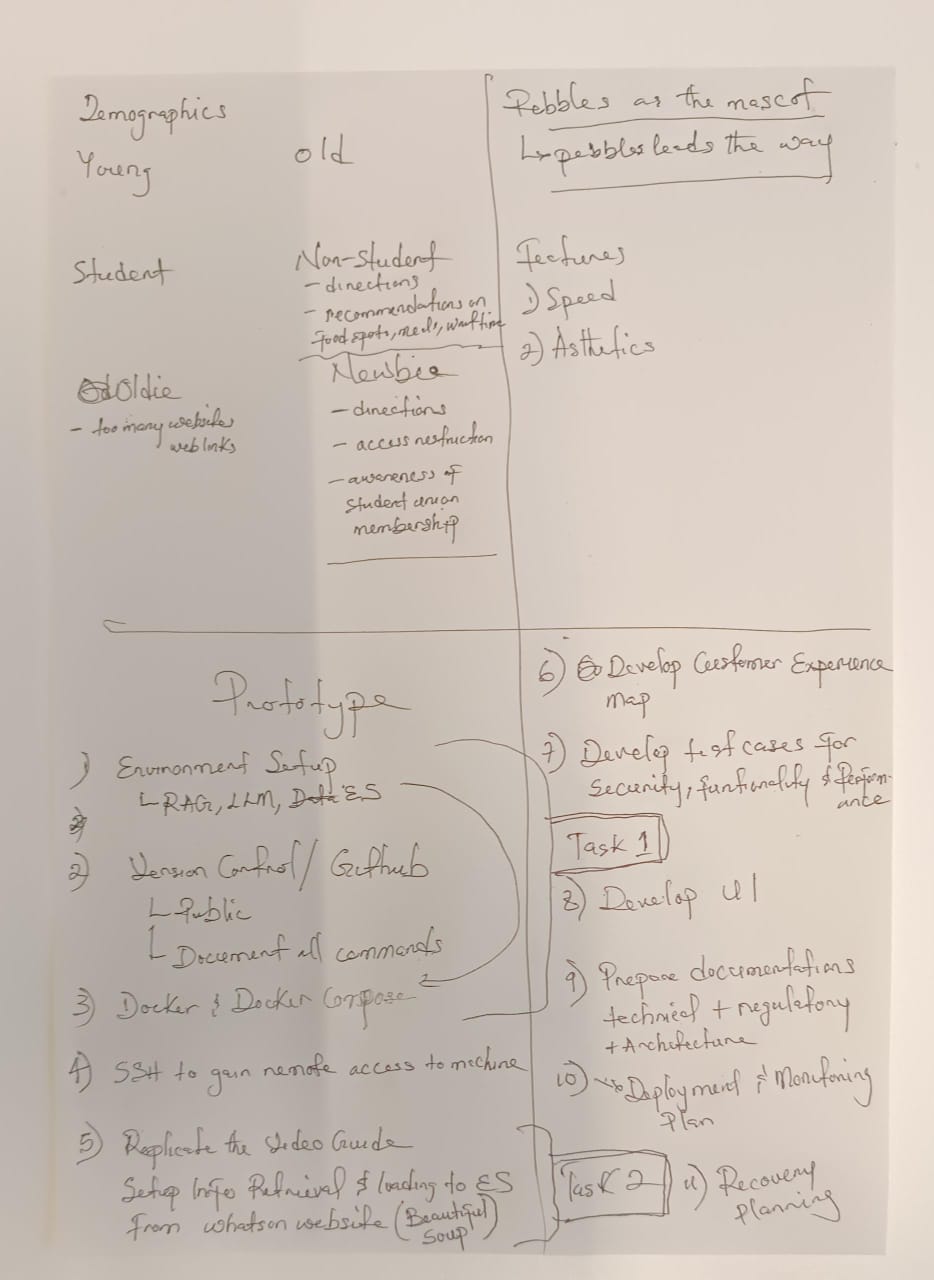 Demographics
Young
old
Student
Non-Student
- directions
- recommendations on
food spots, meals, wait time
Oldie
- too many websites
weblinks
Newbie
- directions
- access restriction
- awareness of
Student union
membership
Pebbles as the mascot
↳ pebbles leads the way
Features
1) Speed
2) Asthetics
Prototype
1) Environment Setup
└ RAG, LLM, Data ES
2) Version Control / Github
└ Public
└ Document all commands
3) Docker & Docker Compose
4) SSH to gain remote access to machine
5) Replicate the Video Guide
Setup Info Retrieval & loading to ES
from whatson website (Beautiful
Soup)
6) Develop Customer Experience
map
7) Develop test cases for
Security, funtionality & Perform-
ance
Task 1
8) Develop UI
9) Prepare documentations
technical + regulatory
+ Architecture
10) Deployment & Monitoring
Plan
Task 2
11) Recovery
Planning